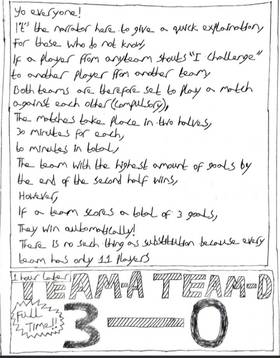 Yo everyone!
It's the narrator here to give a quick explaination,
For those who do not know,
If a player from anyteam shouts "I challenge"
to another player from another team,
Both teams are therefore set to play a match
against each other (compulsory),
The matches take place in two halves,
30 minutes for each,
60 minutes in total,
The team with the highest amount of goals by
the end of the second half wins,
However,
If a team scores a total of 3 goals,
They win automatically!
There is no such thing as substitution because every
team has only 11 players
1 hour later
TEAM-A TEAM-D
Full
Time!!
3 — 0